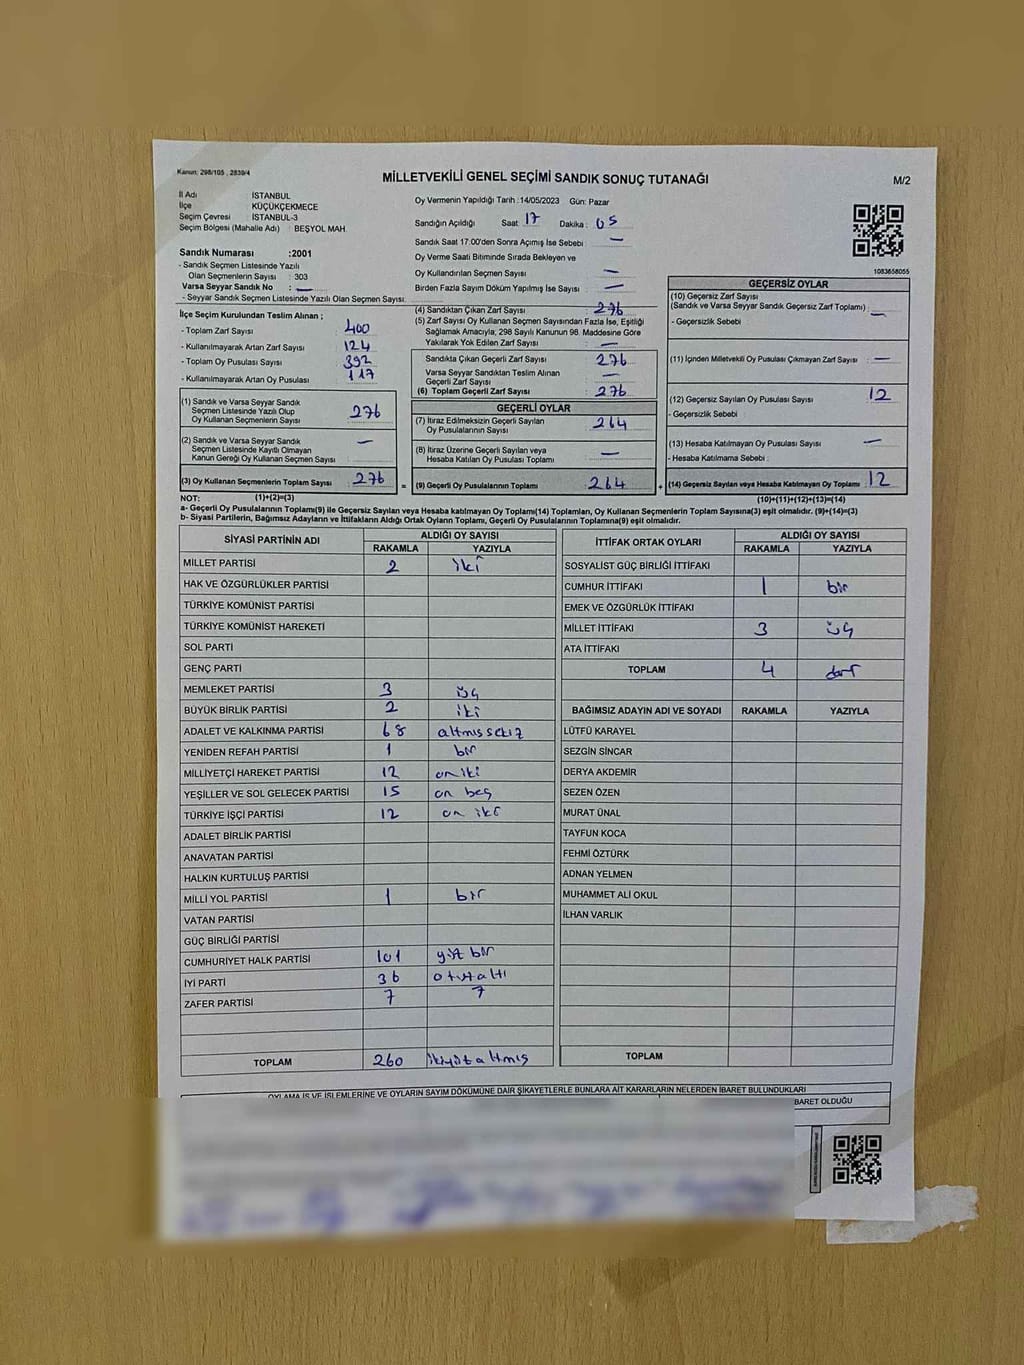 Kanun: 298/105 , 2839/4
MİLLETVEKİLİ GENEL SEÇİMİ SANDIK SONUÇ TUTANAĞI
M/2
İl Adı İSTANBUL
İlçe KÜÇÜKÇEKMECE
Seçim Çevresi İSTANBUL-3
Seçim Bölgesi (Mahalle Adı) : BEŞYOL MAH.
Oy Vermenin Yapıldığı Tarih :14/05/2023 Gün: Pazar
Sandığın Açıldığı Saat : 17 Dakika : 05
Sandık Saat 17:00'den Sonra Açımış İse Sebebi : —
Oy Verme Saati Bitiminde Sırada Bekleyen ve
Oy Kullandırılan Seçmen Sayısı : —
Birden Fazla Sayım Döküm Yapılmış İse Sayısı : —
1083658055
Sandık Numarası :2001
- Sandık Seçmen Listesinde Yazılı
Olan Seçmenlerin Sayısı : 303
Varsa Seyyar Sandık No : —
- Seyyar Sandık Seçmen Listesinde Yazılı Olan Seçmen Sayısı:
İlçe Seçim Kurulundan Teslim Alınan ;
- Toplam Zarf Sayısı : 400
- Kullanılmayarak Artan Zarf Sayısı : 124
- Toplam Oy Pusulası Sayısı : 392
- Kullanılmayarak Artan Oy Pusulası : 117
(1) Sandık ve Varsa Seyyar Sandık
Seçmen Listesinde Yazılı Olup
Oy Kullanan Seçmenlerin Sayısı : 276
(2) Sandık ve Varsa Seyyar Sandık
Seçmen Listesinde Kayıtlı Olmayan
Kanun Gereği Oy Kullanan Seçmen Sayısı : —
(3) Oy Kullanan Seçmenlerin Toplam Sayısı : 276
(4) Sandıktan Çıkan Zarf Sayısı : 276
(5) Zarf Sayısı Oy Kullanan Seçmen Sayısından Fazla İse, Eşitliği
Sağlamak Amacıyla, 298 Sayılı Kanunun 98. Maddesine Göre
Yakılarak Yok Edilen Zarf Sayısı : —
Sandıkta Çıkan Geçerli Zarf Sayısı : 276
Varsa Seyyar Sandıktan Teslim Alınan
Geçerli Zarf Sayısı : —
(6) Toplam Geçerli Zarf Sayısı : 276
GEÇERLİ OYLAR
(7) İtiraz Edilmeksizin Geçerli Sayılan
Oy Pusulalarının Sayısı : 264
(8) İtiraz Üzerine Geçerli Sayılan veya
Hesaba Katılan Oy Pusulası Toplamı : —
= (9) Geçerli Oy Pusulalarının Toplamı : 264 +
GEÇERSİZ OYLAR
(10) Geçersiz Zarf Sayısı
(Sandık ve Varsa Seyyar Sandık Geçersiz Zarf Toplamı) : —
- Geçersizlik Sebebi :
(11) İçinden Milletvekili Oy Pusulası Çıkmayan Zarf Sayısı : —
(12) Geçersiz Sayılan Oy Pusulası Sayısı : 12
- Geçersizlik Sebebi :
(13) Hesaba Katılmayan Oy Pusulası Sayısı : —
- Hesaba Katılmama Sebebi :
(14) Geçersiz Sayılan veya Hesaba Katılmayan Oy Toplamı : 12
NOT: (1)+(2)=(3) (10)+(11)+(12)+(13)=(14)
a- Geçerli Oy Pusulalarının Toplamı(9) ile Geçersiz Sayılan veya Hesaba Katılmayan Oy Toplamı(14) Toplamları, Oy Kullanan Seçmenlerin Toplam Sayısına(3) eşit olmalıdır. (9)+(14)=(3)
b- Siyasi Partilerin, Bağımsız Adayların ve İttifakların Aldığı Ortak Oyların Toplamı, Geçerli Oy Pusulalarının Toplamına(9) eşit olmalıdır.
SİYASİ PARTİNİN ADI ALDIĞI OY SAYISI
RAKAMLA YAZIYLA
MİLLET PARTİSİ 2 iki
HAK VE ÖZGÜRLÜKLER PARTİSİ
TÜRKİYE KOMÜNİST PARTİSİ
TÜRKİYE KOMÜNİST HAREKETİ
SOL PARTİ
GENÇ PARTİ
MEMLEKET PARTİSİ 3 üç
BÜYÜK BİRLİK PARTİSİ 2 iki
ADALET VE KALKINMA PARTİSİ 68 altmış sekiz
YENİDEN REFAH PARTİSİ 1 bir
MİLLİYETÇİ HAREKET PARTİSİ 12 on iki
YEŞİLLER VE SOL GELECEK PARTİSİ 15 on beş
TÜRKİYE İŞÇİ PARTİSİ 12 on iki
ADALET BİRLİK PARTİSİ
ANAVATAN PARTİSİ
HALKIN KURTULUŞ PARTİSİ
MİLLİ YOL PARTİSİ 1 bir
VATAN PARTİSİ
GÜÇ BİRLİĞİ PARTİSİ
CUMHURİYET HALK PARTİSİ 101 yüz bir
İYİ PARTİ 36 otuz altı
ZAFER PARTİSİ 7 7
TOPLAM 260 ikiyüz altmış
İTTİFAK ORTAK OYLARI ALDIĞI OY SAYISI
RAKAMLA YAZIYLA
SOSYALİST GÜÇ BİRLİĞİ İTTİFAKI
CUMHUR İTTİFAKI 1 bir
EMEK VE ÖZGÜRLÜK İTTİFAKI
MİLLET İTTİFAKI 3 üç
ATA İTTİFAKI
TOPLAM 4 dört
BAĞIMSIZ ADAYIN ADI VE SOYADI RAKAMLA YAZIYLA
LÜTFÜ KARAYEL
SEZGİN SİNCAR
DERYA AKDEMİR
SEZEN ÖZEN
MURAT ÜNAL
TAYFUN KOCA
FEHMİ ÖZTÜRK
ADNAN YELMEN
MUHAMMET ALİ OKUL
İLHAN VARLIK
TOPLAM
OYLAMA İŞ VE İŞLEMLERİNE VE OYLARIN SAYIM DÖKÜMÜNE DAİR ŞİKAYETLERLE BUNLARA AİT KARARLARIN NELERDEN İBARET BULUNDUKLARI
BARET OLDUĞU